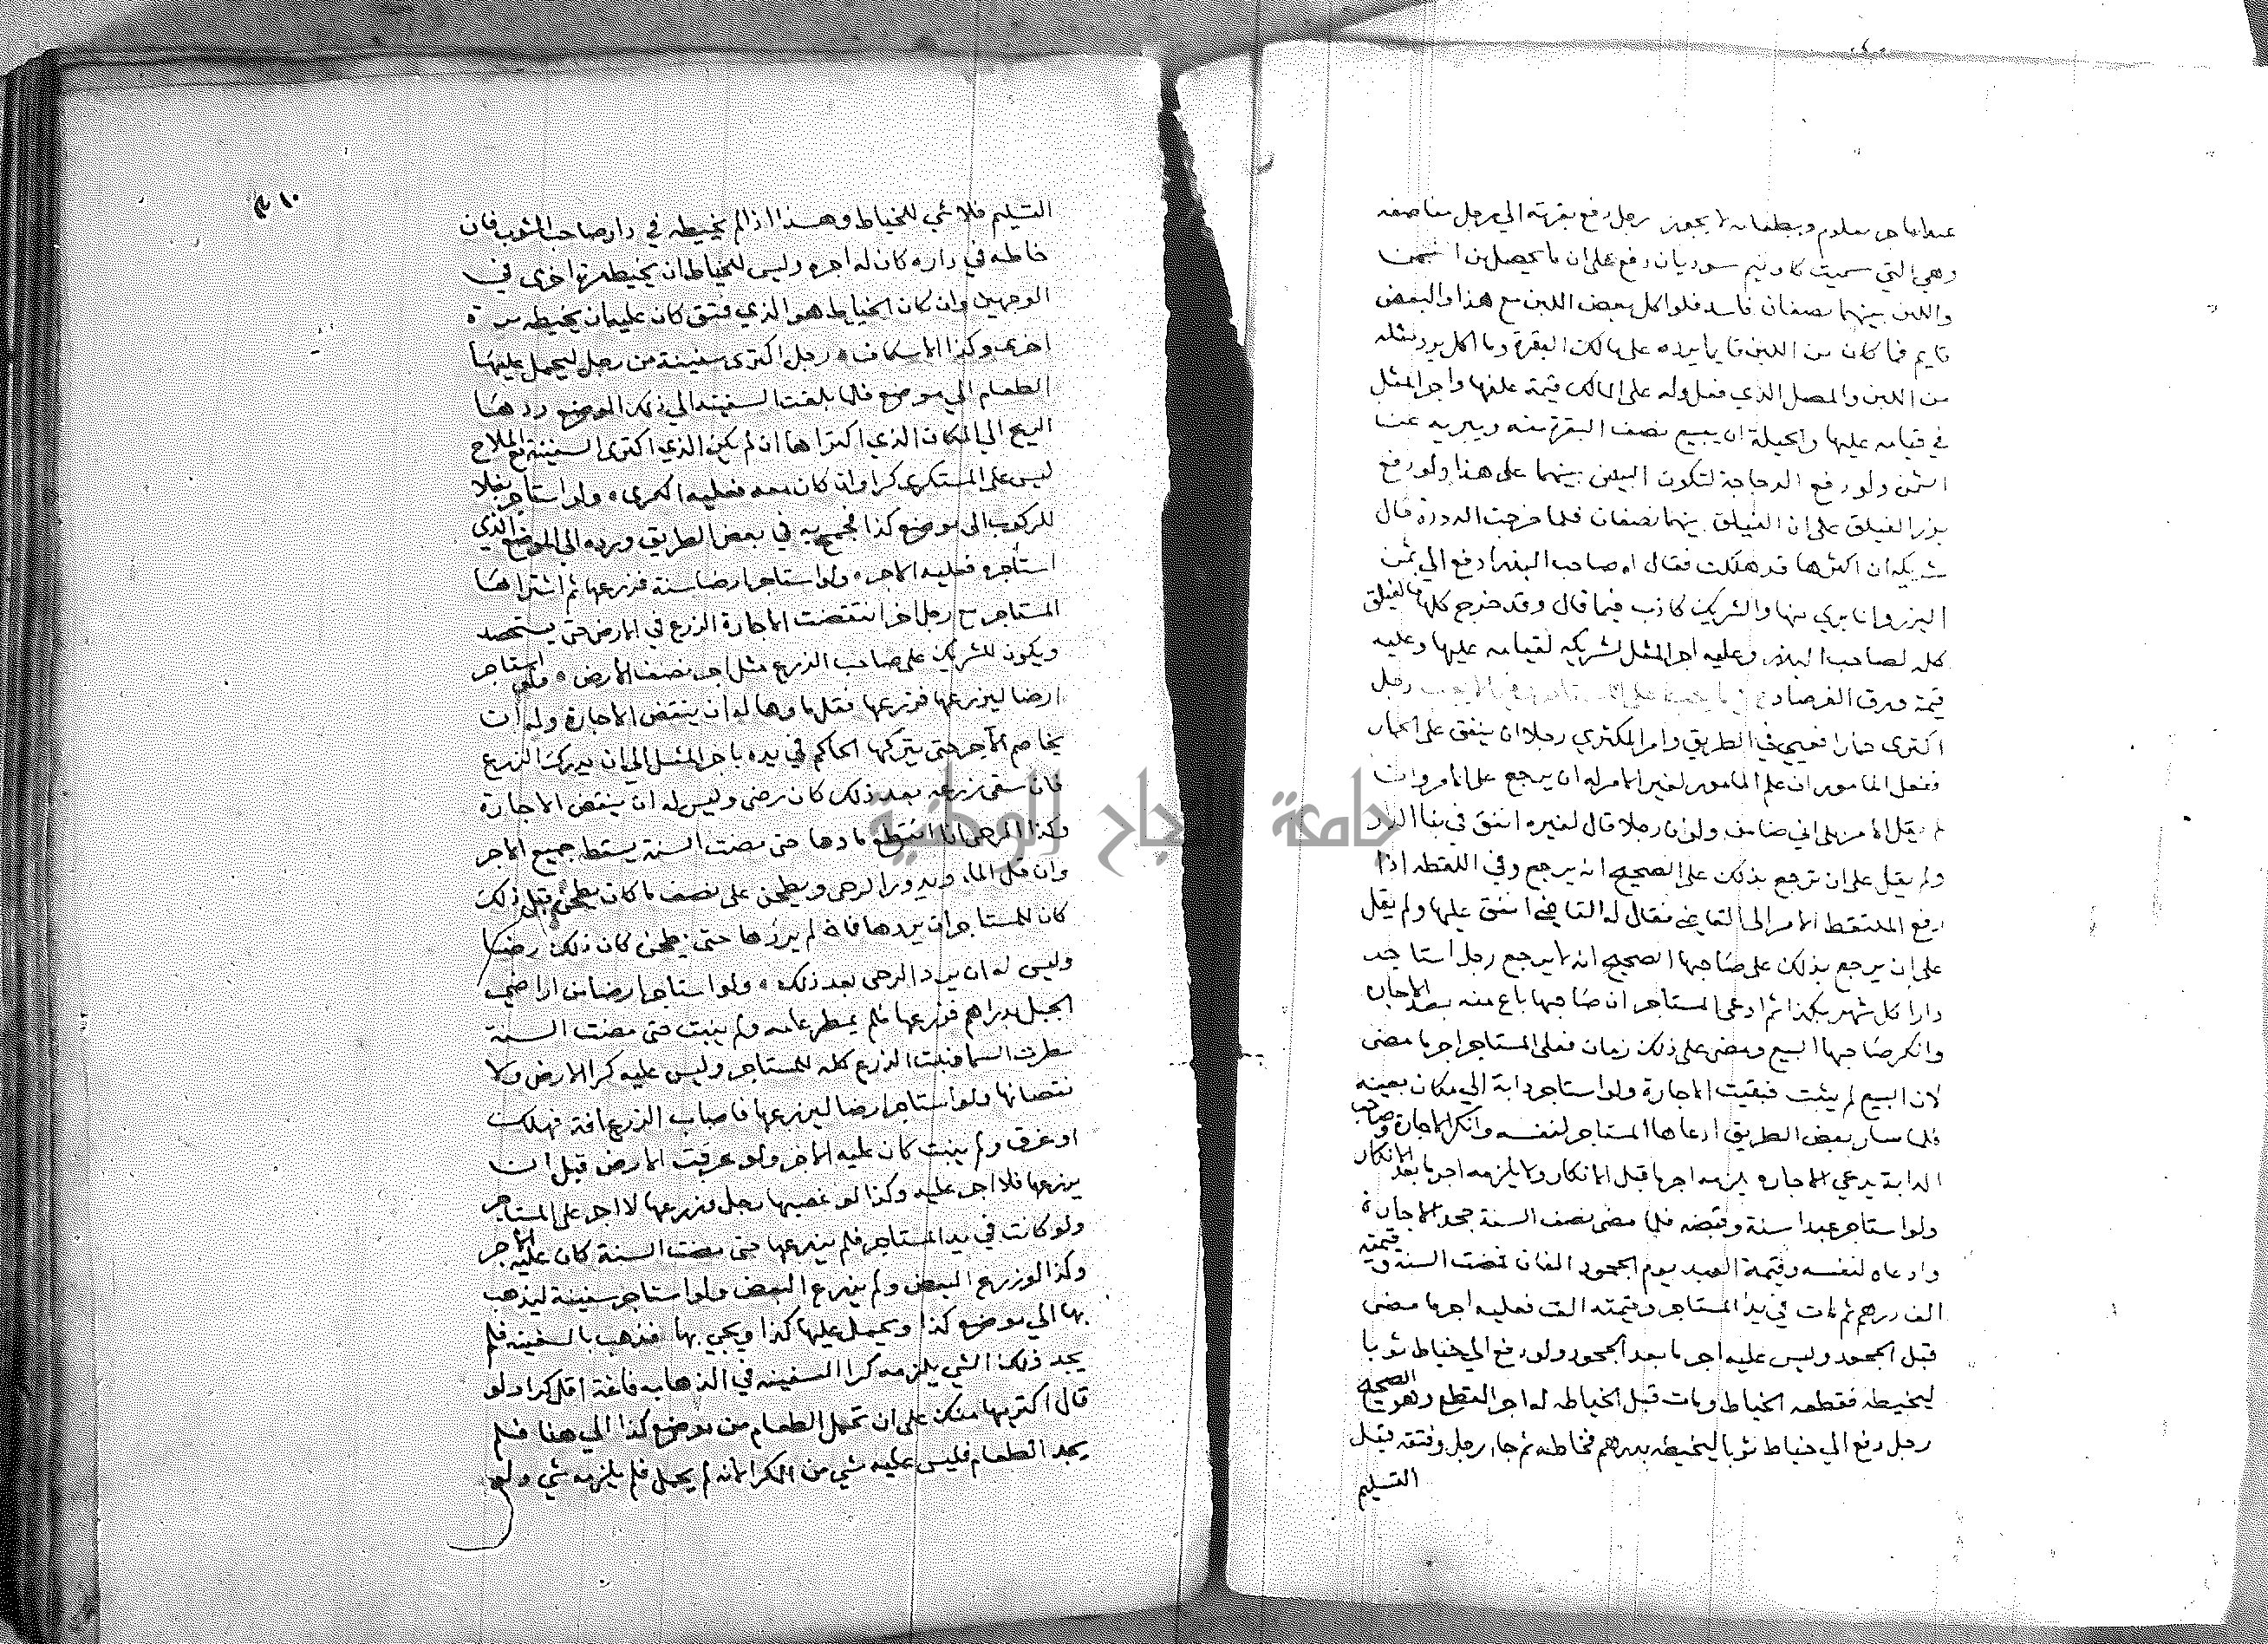 عبدا باجر معلوم وبطعامه لا يجوز رجل دفع بقرته الي رجل مناصفه
وهي التي سميت كاونيم سوديان دفع على ان ما يحصل من السمن
واللبن بينهما نصفان فاسد فلو اكل بعض اللبن مع هذا والبعض
قايم فما كان من اللبن قايما يرده على مالك البقرة وما اكل يرد مثله
من اللبن والمصل الذي فعل وله على المالك قيمة علفها واجر المثل
في قيامه عليها والحيلة ان يبيع نصف البقرة منه ويبريه عن
الثمن ولو دفع الدجاجة لتكون البيض بينهما على هذا ولو دفع
بزر الفيلق على ان الفيلق بينهما نصفان فلما خرجت الدودة قال
شريكه ان اكثرها قد هلكت فقال له صاحب البذر ادفع الي ثمن
البزر وانا بري منها والشريك كاذب فيما قال وقد خرج كلها فالفيلق
كله لصاحب البذر وعليه اجر المثل لشريكه لقيامه عليها وعليه
قيمة ورق الفرصاد رجل
اكترى حمارا فعيي في الطريق وامر المكتري رجلا ان ينفق على الحمار
ففعل المامور ان علم المامور لغير الامر له ان يرجع على الامر وان
لم يقل الامر على اني ضامن ولو ان رجلا قال لغيره انفق في بنا الدار
ولم يقل على ان ترجع بذلك على الصحيح انه يرجع وفي اللقطه اذا
رفع الملتقط الامر الى القاضي فقال له القاضي انفق عليها ولم يقل
على ان يرجع بذلك على صاحبها الصحيح انه لا يرجع رجل استاجر
دارا كل شهر بكذا ثم ادعى المستاجر ان صاحبها باع منه بعد الاجاره
وانكر صاحبها البيع ومضى على ذلك زمان فعلى المستاجر اجر ما مضى
لان البيع لم يثبت فبقيت الاجارة ولو استاجر دابة الي مكان بعينه
فلما سار بعض الطريق ادعاها المستاجر لنفسه وانكر الاجارة وصاحب
الدابة يدعي الاجاره يلزمه اجر ما قبل الانكار ولا يلزمه اجر ما بعد الانكار
ولو استاجر عبدا سنة وقبضه فلما مضى نصف السنة جحد الاجارة
وادعاه لنفسه وقيمة العبد يوم الجحود الفان فمضت السنة وقيمته
الف درهم ثم مات في يد المستاجر وقيمته الف فعليه اجر ما مضى
قبل الجحود وليس عليه اجر ما بعد الجحود ولو دفع الي خياط ثوبا
ليخيطه فقطعه الخياط ومات قبل الخياطه له اجر القطع وهو الصحيح
رجل دفع الي خياط ثوبا ليخيطه بدرهم فخاطه ثم جاء رجل وفتقه قبل
التسليم
التسليم فلا شي للخياط وهذا اذا لم يخيطه في دار صاحب الثوب فان
خاطه في داره كان له اجره وليس للخياط ان يخيطه مرة اخرى في
الوجهين وان كان الخياط هو الذي فتق كان عليه ان يخيطه مرة
اخرى وكذا الاسكاف رجل اكترى سفينة من رجل ليحمل عليها
الطعام الي موضع فلما بلغت السفينه الي ذلك الموضع ردها
الريح الي المكان الذي اكتراها ان لم يكن الذي اكترى السفينة مع الملاح
ليس على المستكري كرا وان كان معه فعليه الكري ولو استاجر بغلا
للركوب الى موضع كذا فجمح به في بعض الطريق ورده الي الموضع الذي
استأجره فعليه الاجر ولو استاجر ارضا سنة فزرعها ثم اشتراها
المستاجر مع رجل اخر انتقضت الاجارة الزرع في الارض حتى يستحصد
ويكون للشريك على صاحب الزرع مثل اجر نصف الارض ولو استاجر
ارضا ليزرعها فزرعها فقل ماوها له ان ينتقض الاجارة وله ان
يخاصم الآجر حتى يتركها الحاكم في يده باجر المثل الي ان يدرك الزرع
فان سقى زرعه بعد ذلك كان رضى وليس له ان ينتقض الاجارة
وكذا الرحى اذا انقطع ماوها حتى مضت السنة يسقط جميع الاجر
وان قل الماء ويدور الرحى ويطحن على نصف ما كان يطحن قبل ذلك
كان للمستاجر ان يردها فان لم يردها حتى يطحن كان ذلك رضا
وليس له ان يرد الرحى بعد ذلك ولو استاجر ارضا من اراضي
الجبل بدراهم فزرعها فلم يمطر عامه ولم ينبت حتى مضت السنة
مطرت السما فنبت الزرع كله للمستاجر وليس عليه كرا الارض ولا
نقصانها ولو استاجر ارضا ليزرعها فاصاب الزرع افة فهلك
او غرق ولم ينبت كان عليه الاجر ولو غرقت الارض قبل ان
يزرعها فلا اجر عليه وكذا لو غصبها رجل فزرعها لا اجر على المستاجر
ولو كانت في يد المستاجر فلم يزرعها حتى مضت السنة كان عليه الاجر
وكذا لو زرع البعض ولم يزرع البعض ولو استاجر سفينة ليذهب
بها الي موضع كذا ويحمل عليها كذا ويجي بها فذهب بالسفينه فلم
يجد ذلك الشي يلزمه كرا السفينه في الذهاب فارغة اقل كرا ولو
قال اكتريها منك على ان تحمل الطعام من موضع كذا الي هنا فلم
يجد الطعام فليس عليه شي من الكرا لانه لم يحمل فلم يلزمه شي ولو
جامعة النجاح الوطنية